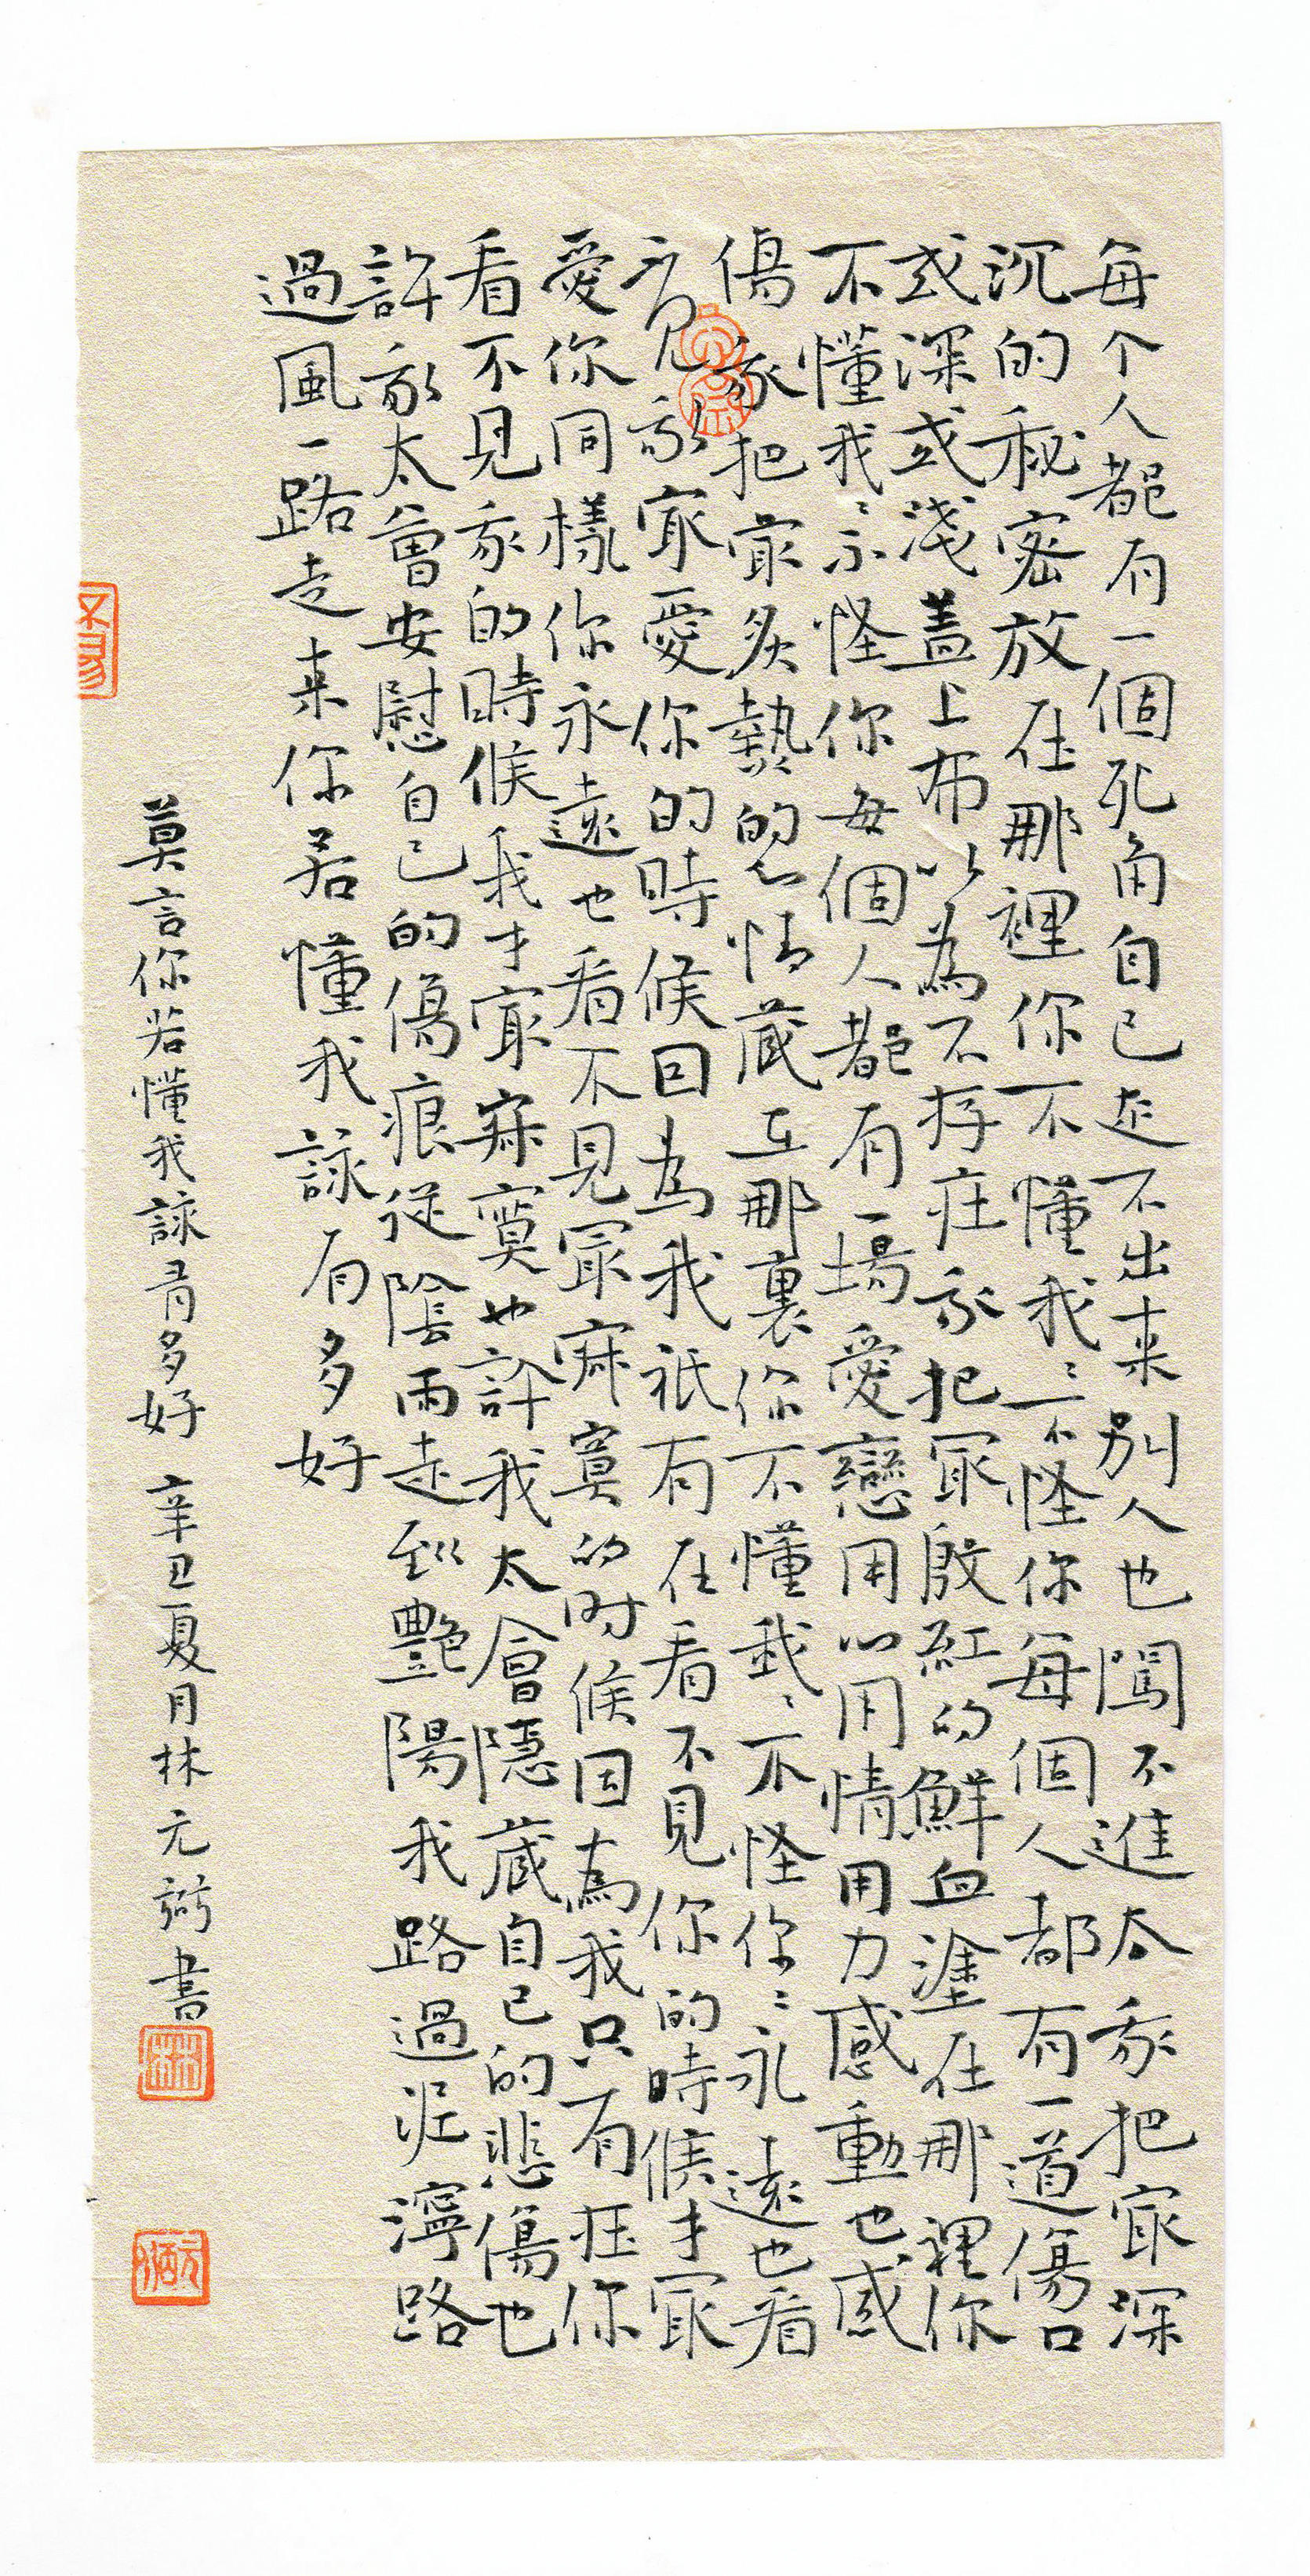 每个人都有一個死角自己走不出来别人也闖不進去我把冣深
沉的秘密放在那裡你不懂我〻不怪你每個人都有一道傷口
或深或淺蓋上布以為不存在我把冣殷紅的鮮血塗在那裡你
不懂我〻不怪你每個人都有一場愛戀用心用情用力感動也感
傷我把冣炙熱的心情藏在那裏你不懂我〻不怪你〻永遠也看
不見我冣愛你的時候因為我祇有在看不見你的時候才冣
愛你同樣你永遠也看不見冣寂寞的时候因為我只有在你
看不見我的時候我才冣寂寞也許我太會隱藏自己的悲傷也
許我太會安慰自己的傷痕從陰雨走到艷陽我路過泥濘路
過風一路走来你若懂我該有多好
莫言你若懂我該有多好 辛丑夏月林元 書